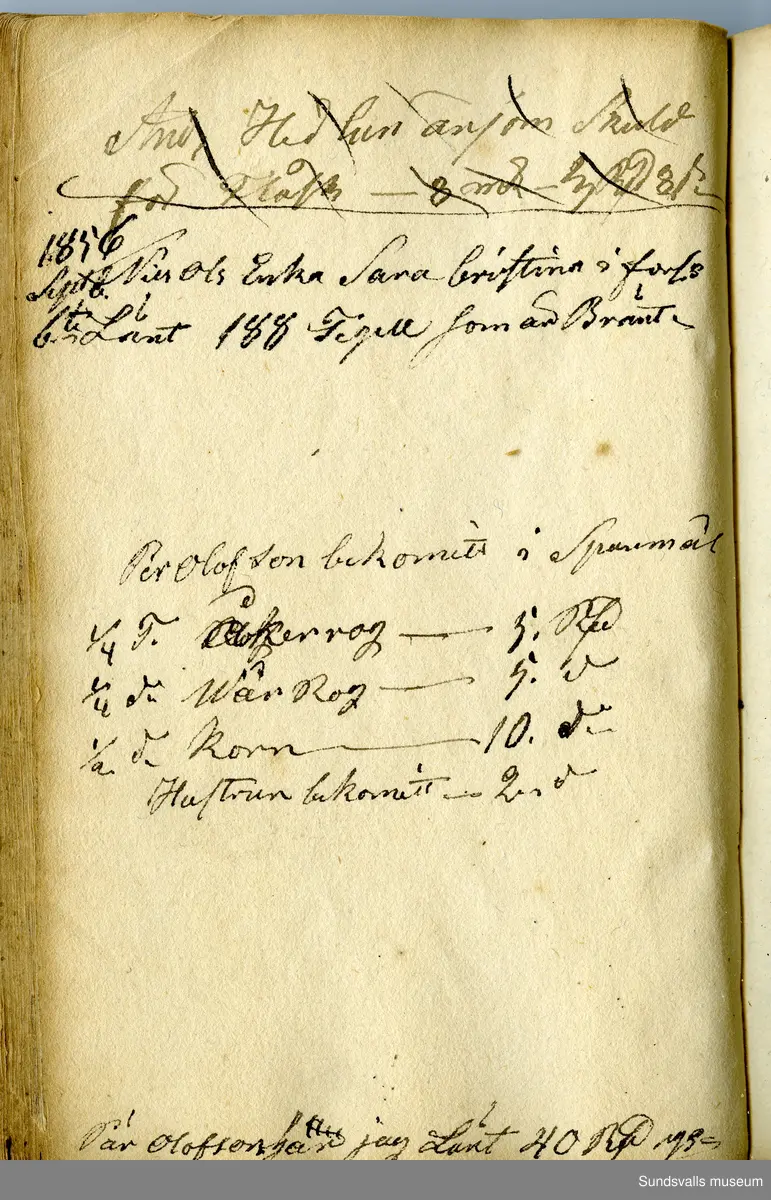 And. Hedlun är som Skuld
för Fläsk — 8 m𝔩 — Rd
1856
Septb. Nils Ols Enka Sara Cristina i forss
6te Lånt 188 Tegell som är Bränt
Per Olofson bekomitt i Spanmål
1/4 T. Åkerrog — 5. Rd
1/4 d. Wår Rog — 5. d
1/2 d. Korn — 10. d.
Hustrun bekomitt — 2. d
Pär Olofson har jag Lånt 40 Rd rgs
Sundsvalls museum